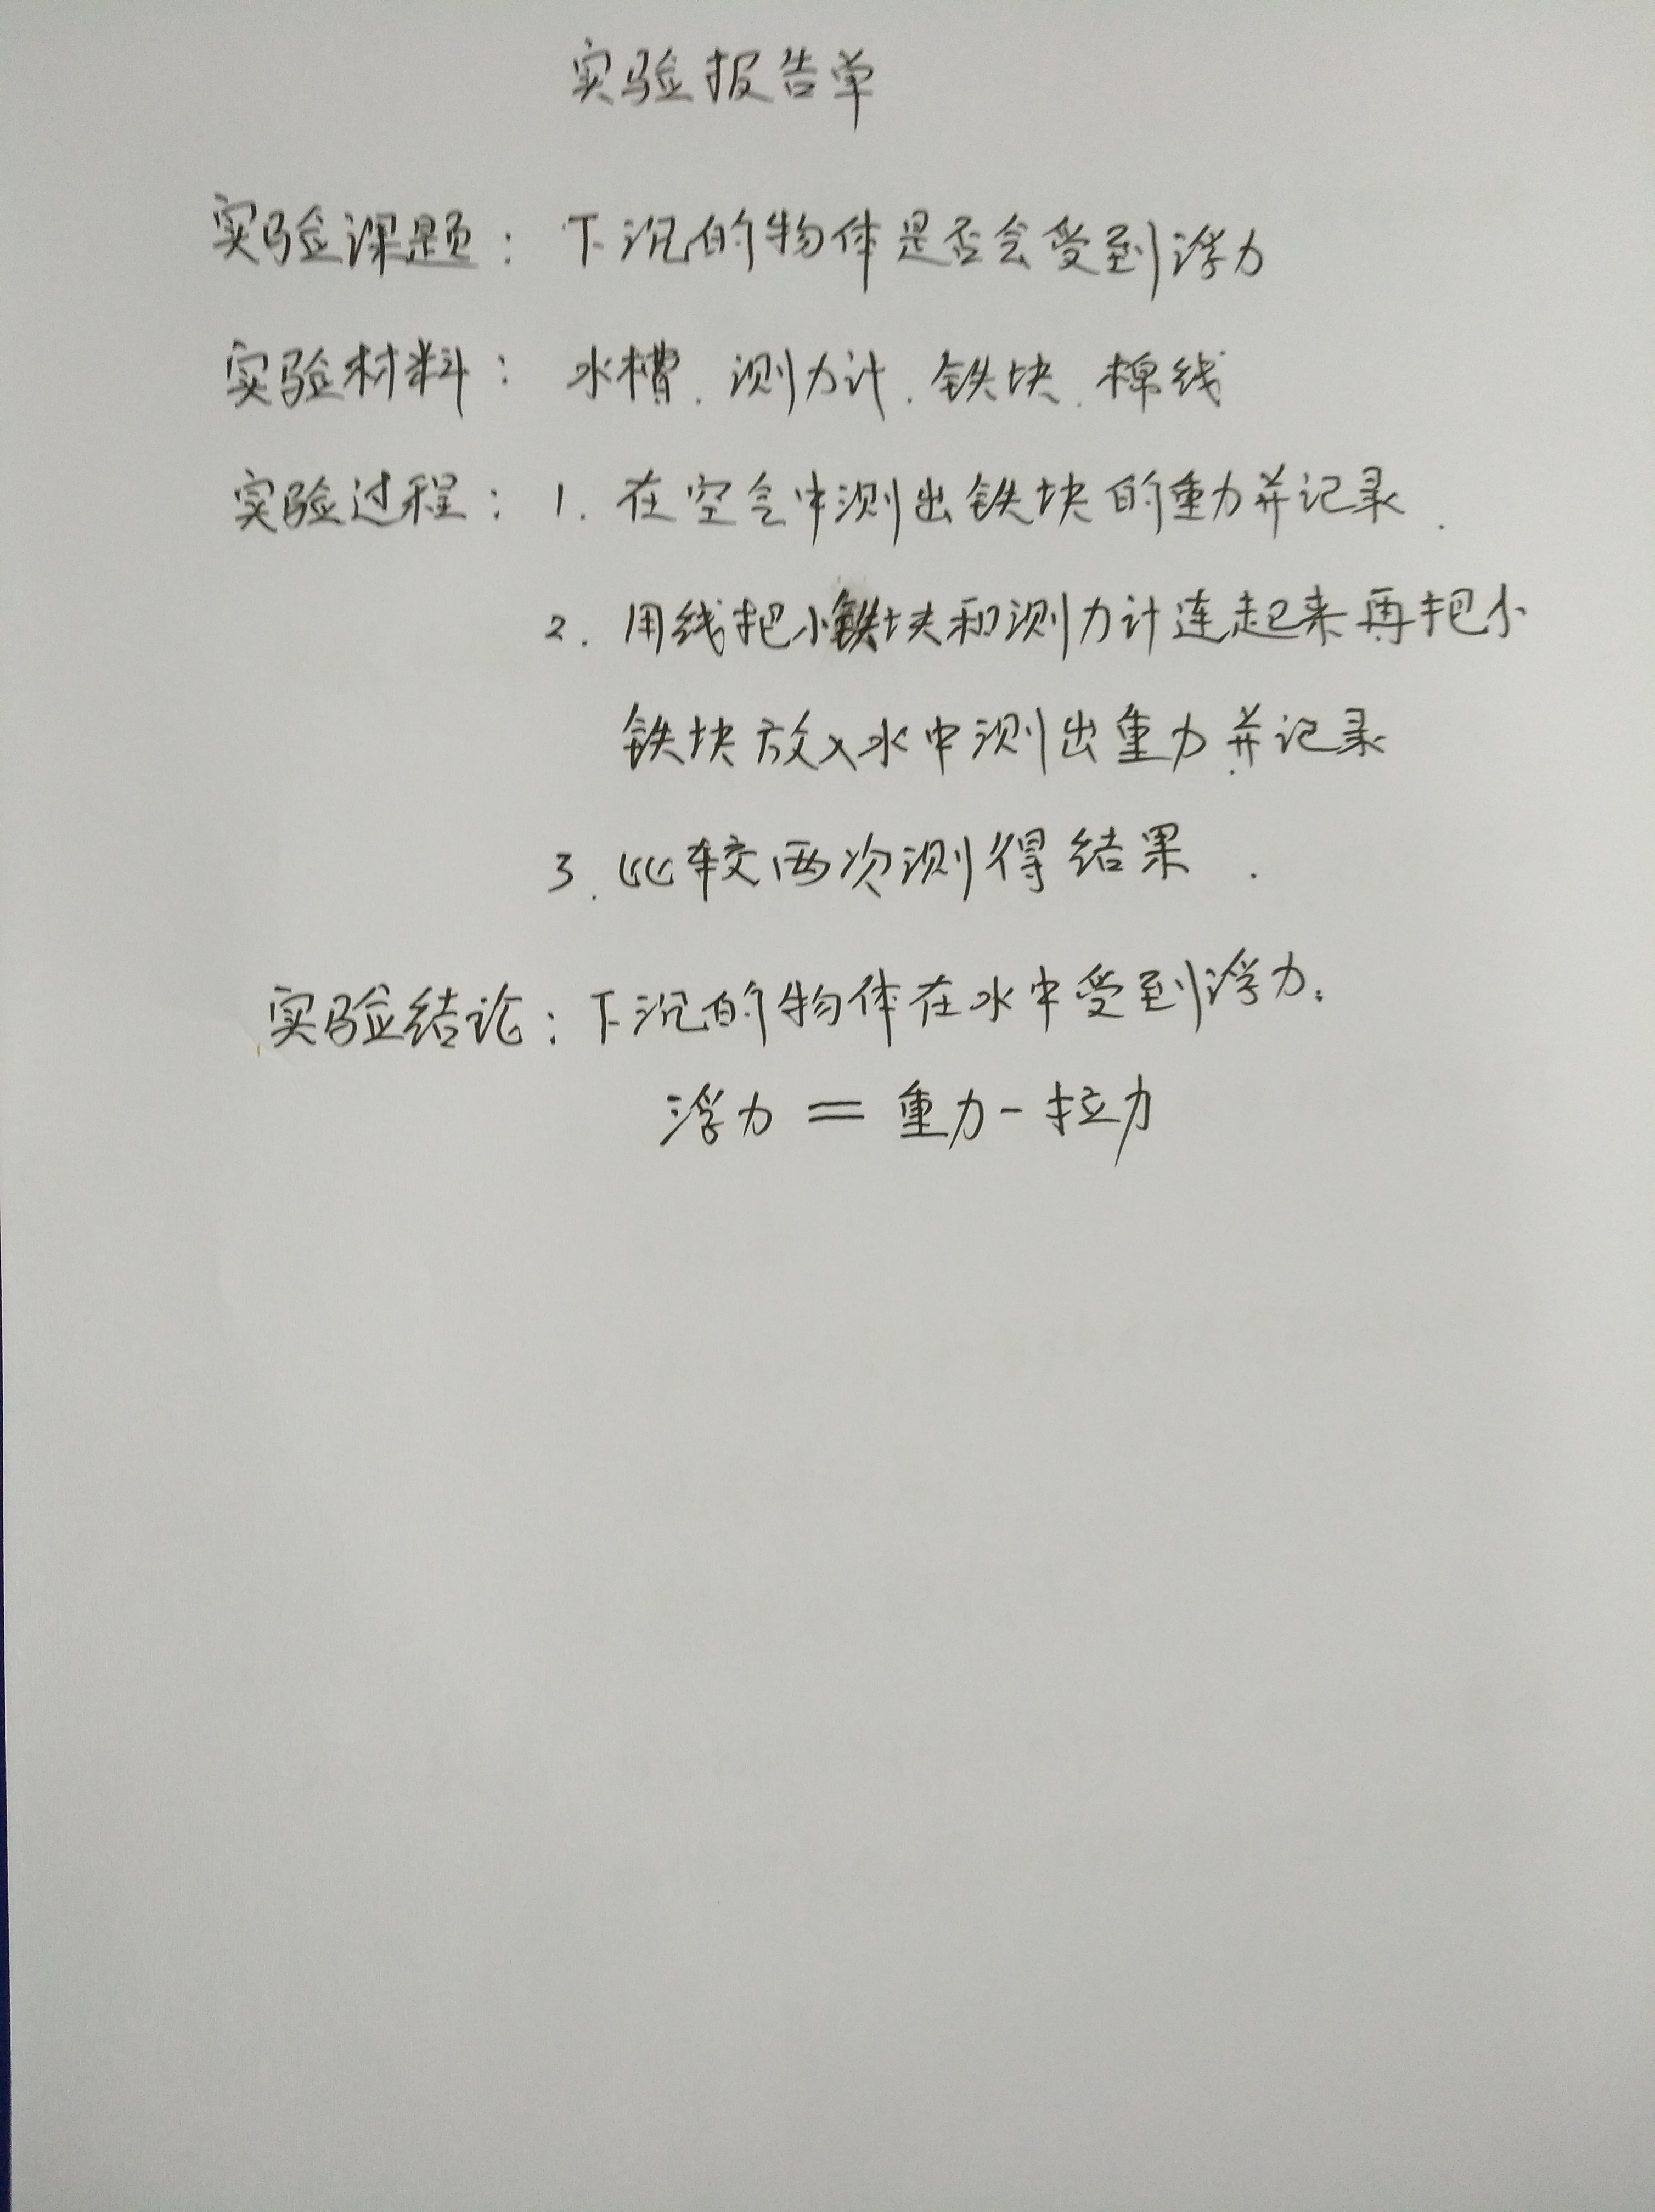 实验报告单
实验课题：下沉的物体是否会受到浮力
实验材料：水槽．测力计．铁块．棉线
实验过程：1.在空气中测出铁块的重力并记录．
2.用线把小铁块和测力计连起来再把小
铁块放入水中测出重力并记录
3.比较两次测得结果．
实验结论：下沉的物体在水中受到浮力。
浮力＝重力－拉力